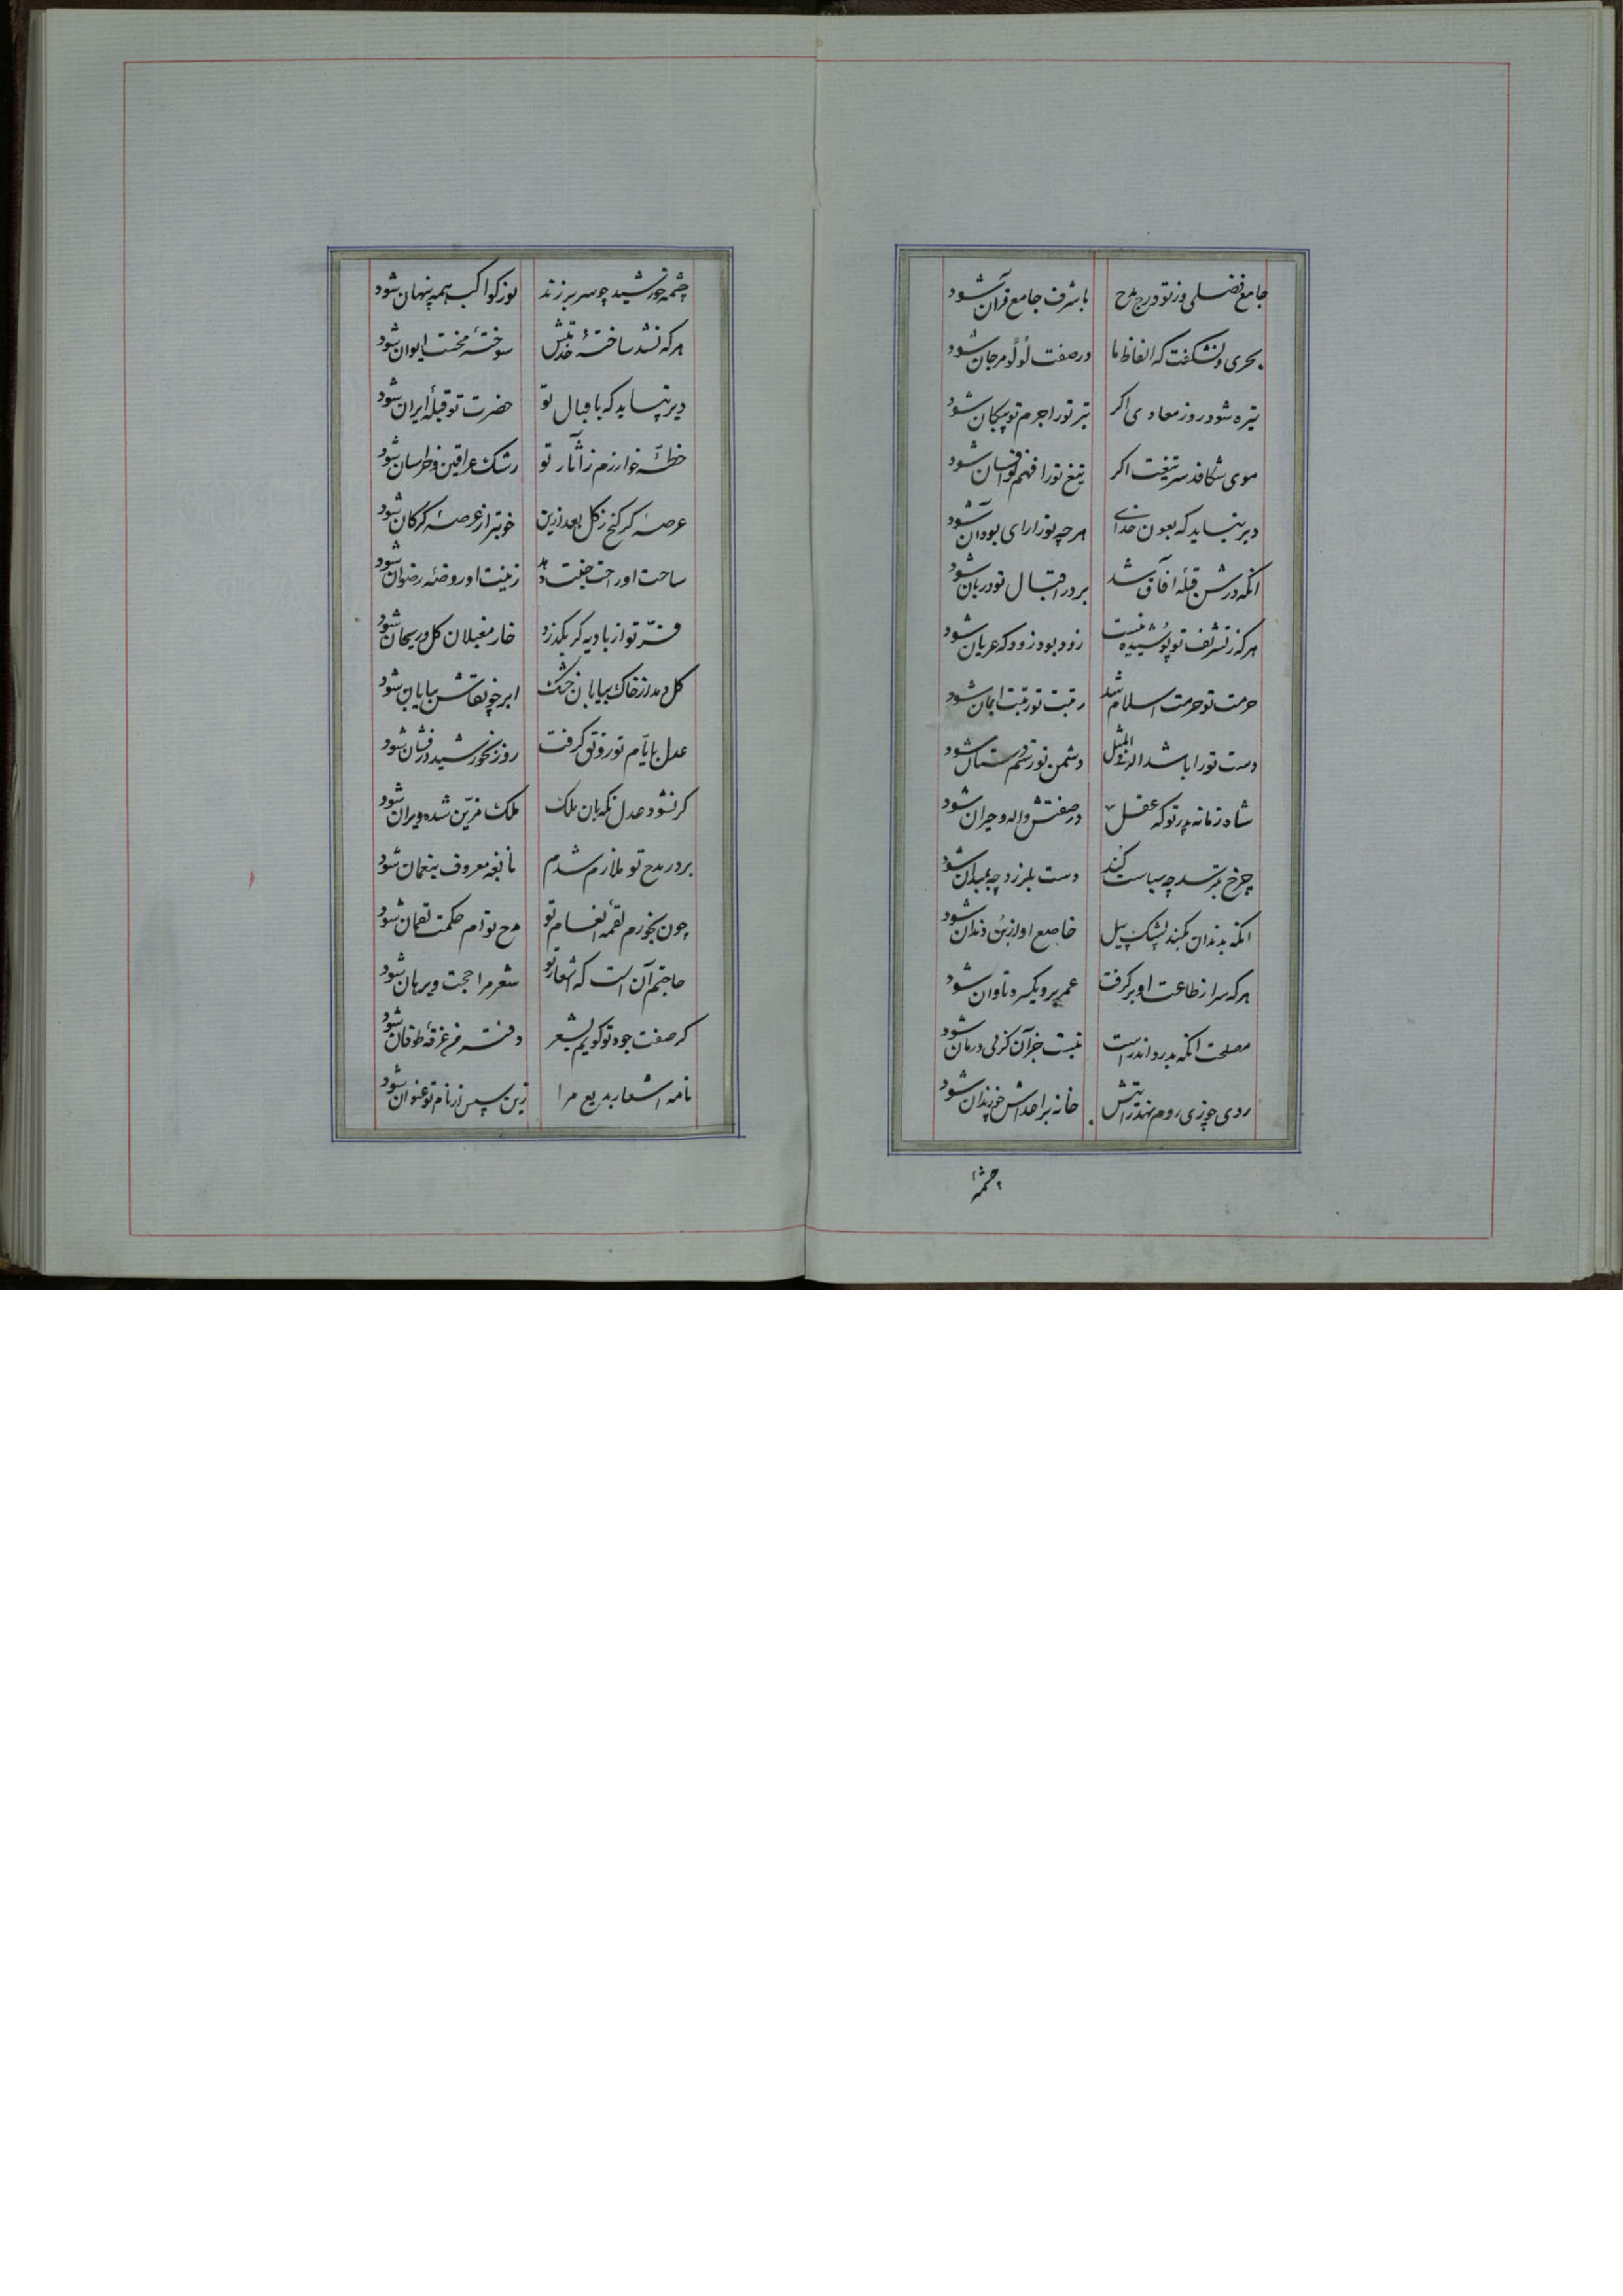 جامع فضلی وز تو درج مدح با شرف جامع قرآن شود
بحری و نشکفت که الفاظ ما در صفت لؤلؤ و مرجان شود
تیره شود روز معادی اکر تیر تو را جرم تو پیکان شود
موی شکافد سر تیغت اکر تیغ تو را فهم تو افسان شود
دیر نپاید که بعون خدای هر چه تو را رای بود آن شود
انکه درش قبلهٔ آفاق شد بر در اقبال تو دربان شود
هر که ز تشریف تو پوشیده نیست زود بود زود که عریان شود
حرمت تو حرمت اسلام شد رتبت تو رتبت ایمان شود
دست تو را باشد اندر المثل دشمن تو رستم دستان شود
شاه زمانه پدر تو که عقل در صفتش واله و حیران شود
چرخ بترسد چه سیاست کند دست بلرزد چه بمیدان شود
انکه بدندان بکند پشک پیل خاضع او از بن دندان شود
هر که سر از طاعت او بر کرفت عمر برو یکسره تاوان شود
مصلحت انکه بدرد اندر است نیست جز آن کز پی درمان شود
روی چو زی روم نهد رایتش خانه بر اعداش چو زندان شود
چشمه
چشمه خورشید چو سر بر زند نور کواکب همه پنهان شود
هر که نشد ساختهٔ خدمتش سوختهٔ محنت ایوان شود
دیر نپاید که باقبال تو حضرت تو قبلهٔ ایران شود
خطهٔ خوارزم ز آثار تو رشک عراقین و خراسان شود
عرصهٔ کرکنج ز کل بعد ازین خوبتر از عرصهٔ کرکان شود
ساحت او راحت جنت دهد زینت او روضهٔ رضوان شود
فرّ تو از بادیه کر بکذرد خار مغیلان کل و ریحان شود
کل دمد از خاک بیابان خشک ابر چو نقاش بیابان شود
عدل بایّام تو رونق کرفت روز ز خورشید درفشان شود
کر نشود عدل نکهبان ملک ملک مزیّن شده ویران شود
بر در مدح تو ملازم شدم نابغه معروف بنعمان شود
چون بخورم لقمهٔ انعام تو مدح توام حکمت لقمان شود
حاجتم آن است که اشعار تو شعر مرا حجت و برهان شود
کر صفت جود تو کویم بشعر دفتر من غرقهٔ طوفان شود
نامه اشعار بدیع مرا زین سپس از نام تو عنوان شود